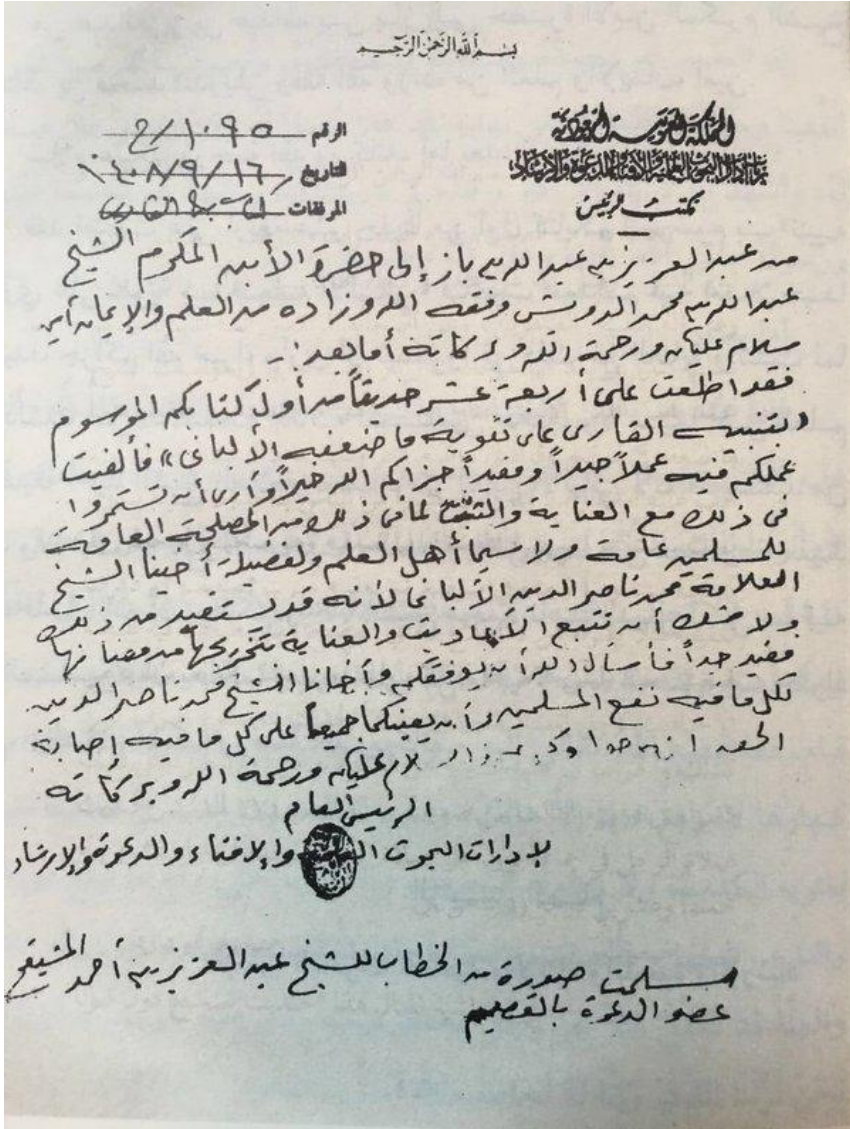 بسم الله الرحمن الرحيم
المملكة العربية السعودية
الرقم ١٠٩٥/خ
رئاسة إدارات البحوث العلمية والإفتاء والدعوة والإرشاد
التاريخ ١٤٠٨/٩/١٦
مكتب الرئيس
المرفقات
من عبد العزيز بن عبد الله بن باز إلى حضرة الأبن المكرم الشيخ
عبد الله بن محمد الدويش وفقه الله وزاده من العلم والإيمان آمين
سلام عليكم ورحمة الله وبركاته أما بعد :ـ
فقد اطلعت على أربعة عشر حديثاً من أول كتابكم الموسوم
«بتنبيه القارى على تقوية ما ضعفه الألبانى» فألفيت
عملكم فيه عملاً جيداً ومفيداً جزاكم الله خيراً وأرى أن تستمروا
فى ذلك مع العناية والتثبت لما فى ذلك من المصلحة العامة
للمسلمين عامة ولا سيما أهل العلم ولفضيلة أخينا الشيخ
العلامة محمد ناصر الدين الألبانى لأنه قد يستفيد من ذلك
ولا شك أن تتبع الأحاديث والعناية بتخريجها من مضانها
مفيد جداً فأسأل الله أن يوفقكم وأخانا الشيخ محمد ناصر الدين
لكل ما فيه نفع المسلمين وأن يعينكما جميعاً على كل ما فيه إصابة
الحق إنه جواد كريم والسلام عليكم ورحمة الله وبركاته
الرئيس العام
لإدارات البحوث العلمية والإفتاء والدعوة والإرشاد
سلمت صورة من الخطاب للشيخ عبد العزيز بن أحمد المشيقح
عضو الدعوة بالقصيم